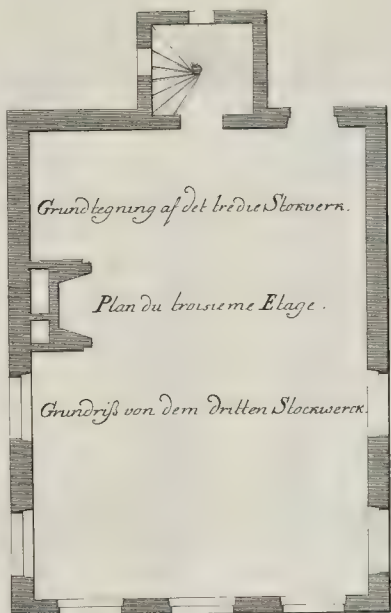 Grundtegning af det tredie Stokverk.
Plan du troisieme Etage.
Grundriß von dem dritten Stockwerck.